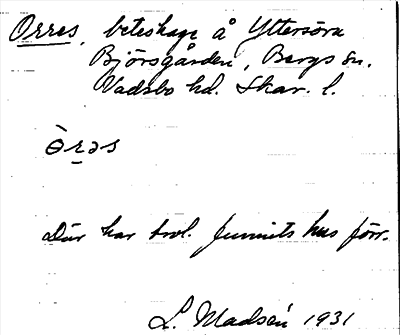 Orres, beteshage å Yttersöra
Björsgården, Bergs sn.
Vadsbo hd. Skar. l.
òrəs
Där har trol. funnits hus förr.
L. Madsén 1931